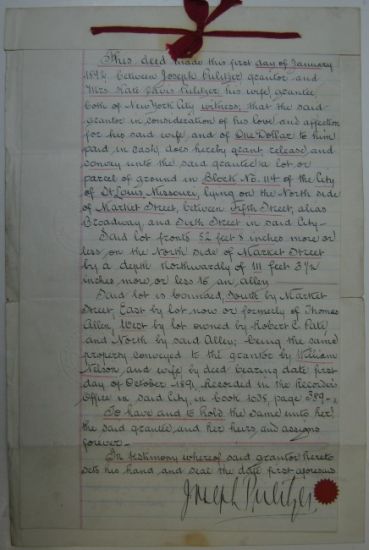 This deed made this first day of January
1892, between Joseph Pulitzer grantor and
Mrs Kate Davis Pulitzer his wife, grantee
both of New York City witness, that the said
grantor in consideration of his love and affection
for his said wife, and of One Dollar to him
paid, in cash, does hereby grant, release, and
convey unto the said grantee a lot or
parcel of ground in Block No. 114 of the City
of St Louis, Missouri, lying on the North side
of Market Street, between Fifth Street, alias
Broadway, and Sixth Street in said City—
Said lot fronts 52 feet 8 inches more or
less on the North side of Market Street
by a depth northwardly of 111 feet 3 1/2
inches more, or less to an alley
Said lot is bounded, South by Market
Street, East by lot now or formerly of Thomas
Allen, West by lot owned by Robert C. Pate,
and North by said Alley; being the same
property conveyed to the grantor by William
Nelson, and wife by deed bearing date first
day of October 1891, recorded in the Recorder's
Office in said City, in book 1038, page 389—
To have and to hold the same unto her
the said grantee, and her heirs and assigns
forever—
In testimony whereof said grantor hereto
sets his hand, and seal the date first aforesaid
Joseph Pulitzer